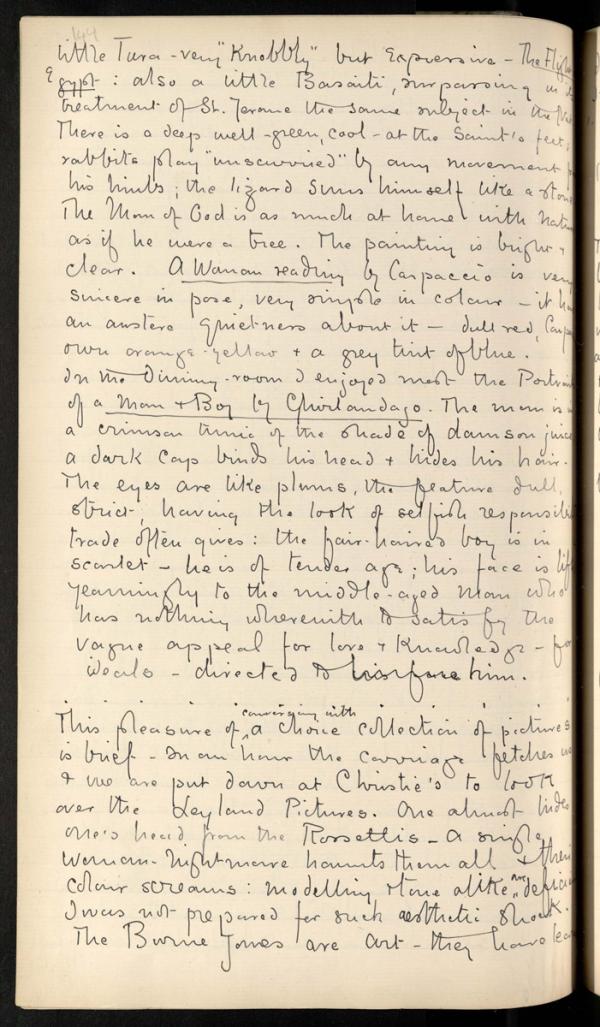 144
little Tura - very "Knobbly" but Expressive - The Fligh
Egypt : also a little Basaiti, surpassing in
treatment of St. Jerome the same subject in the
There is a deep well - green, cool - at the Saint's feet;
rabbits play "unscurried" by any movement
his limbs; the lizard suns himself like a stone
The Man of God is as much at home with Natu
as if he were a tree. The painting is bright +
clear. A Woman reading by Carpaccio is very
sincere in pose, very simple in colour - it has
an austere quietness about it - dull red, Carpa
own orange-yellow + a grey tint of blue.
In the Dining-room I enjoyed most the Portrait
of a Man + Boy by Ghirlandajo. The man is
a crimson tunic of the shade of damson juice
a dark cap binds his head + hides his hair.
The eyes are like plums, the feature dull,
strict, having the look of selfish responsibi
trade often gives: the fair-haired boy is in
scarlet - he is of tender age; his face is lif
yearningly to the middle-aged man who
has nothing wherewith to satisfy the
vague appeal for love + Knowledge - for
ideals - directed to him.
This pleasure of conversing with a choice collection of pictures
is brief - In an hour the carriage fetches us
+ we are put down at Christie's to look
over the Leyland Pictures. One almost hides
one's head from the Rossettis - A single
woman-nightmare haunts them all + their
colour screams: modelling, tone alike are deficie
I was not prepared for such aesthetic shock.
The Burne Jones are art - they have